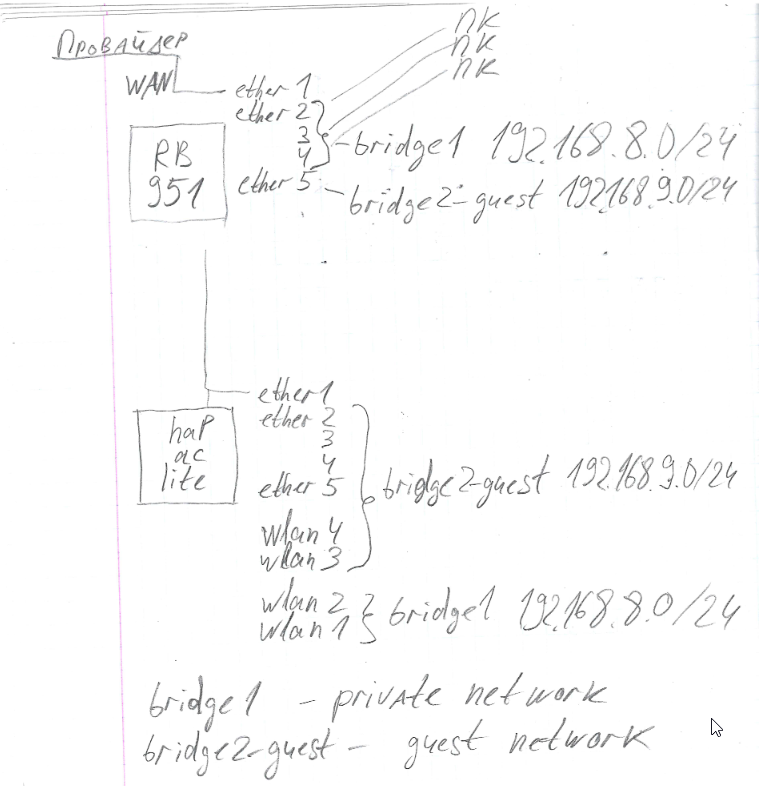 ПК
ПК
ПК
Провайдер
WAN
ether 1
ether 2
3
4
bridge1 192.168.8.0/24
RB
951
ether 5 - bridge2-guest 192168.9.0/24
ether1
ether 2
3
4
ether 5
bridge2-guest 192.168.9.0/24
haP
ac
lite
wlan 4
wlan 3
wlan 2
wlan 1
bridge1 192.168.8.0/24
bridge1 - private network
bridge2-guest - guest network